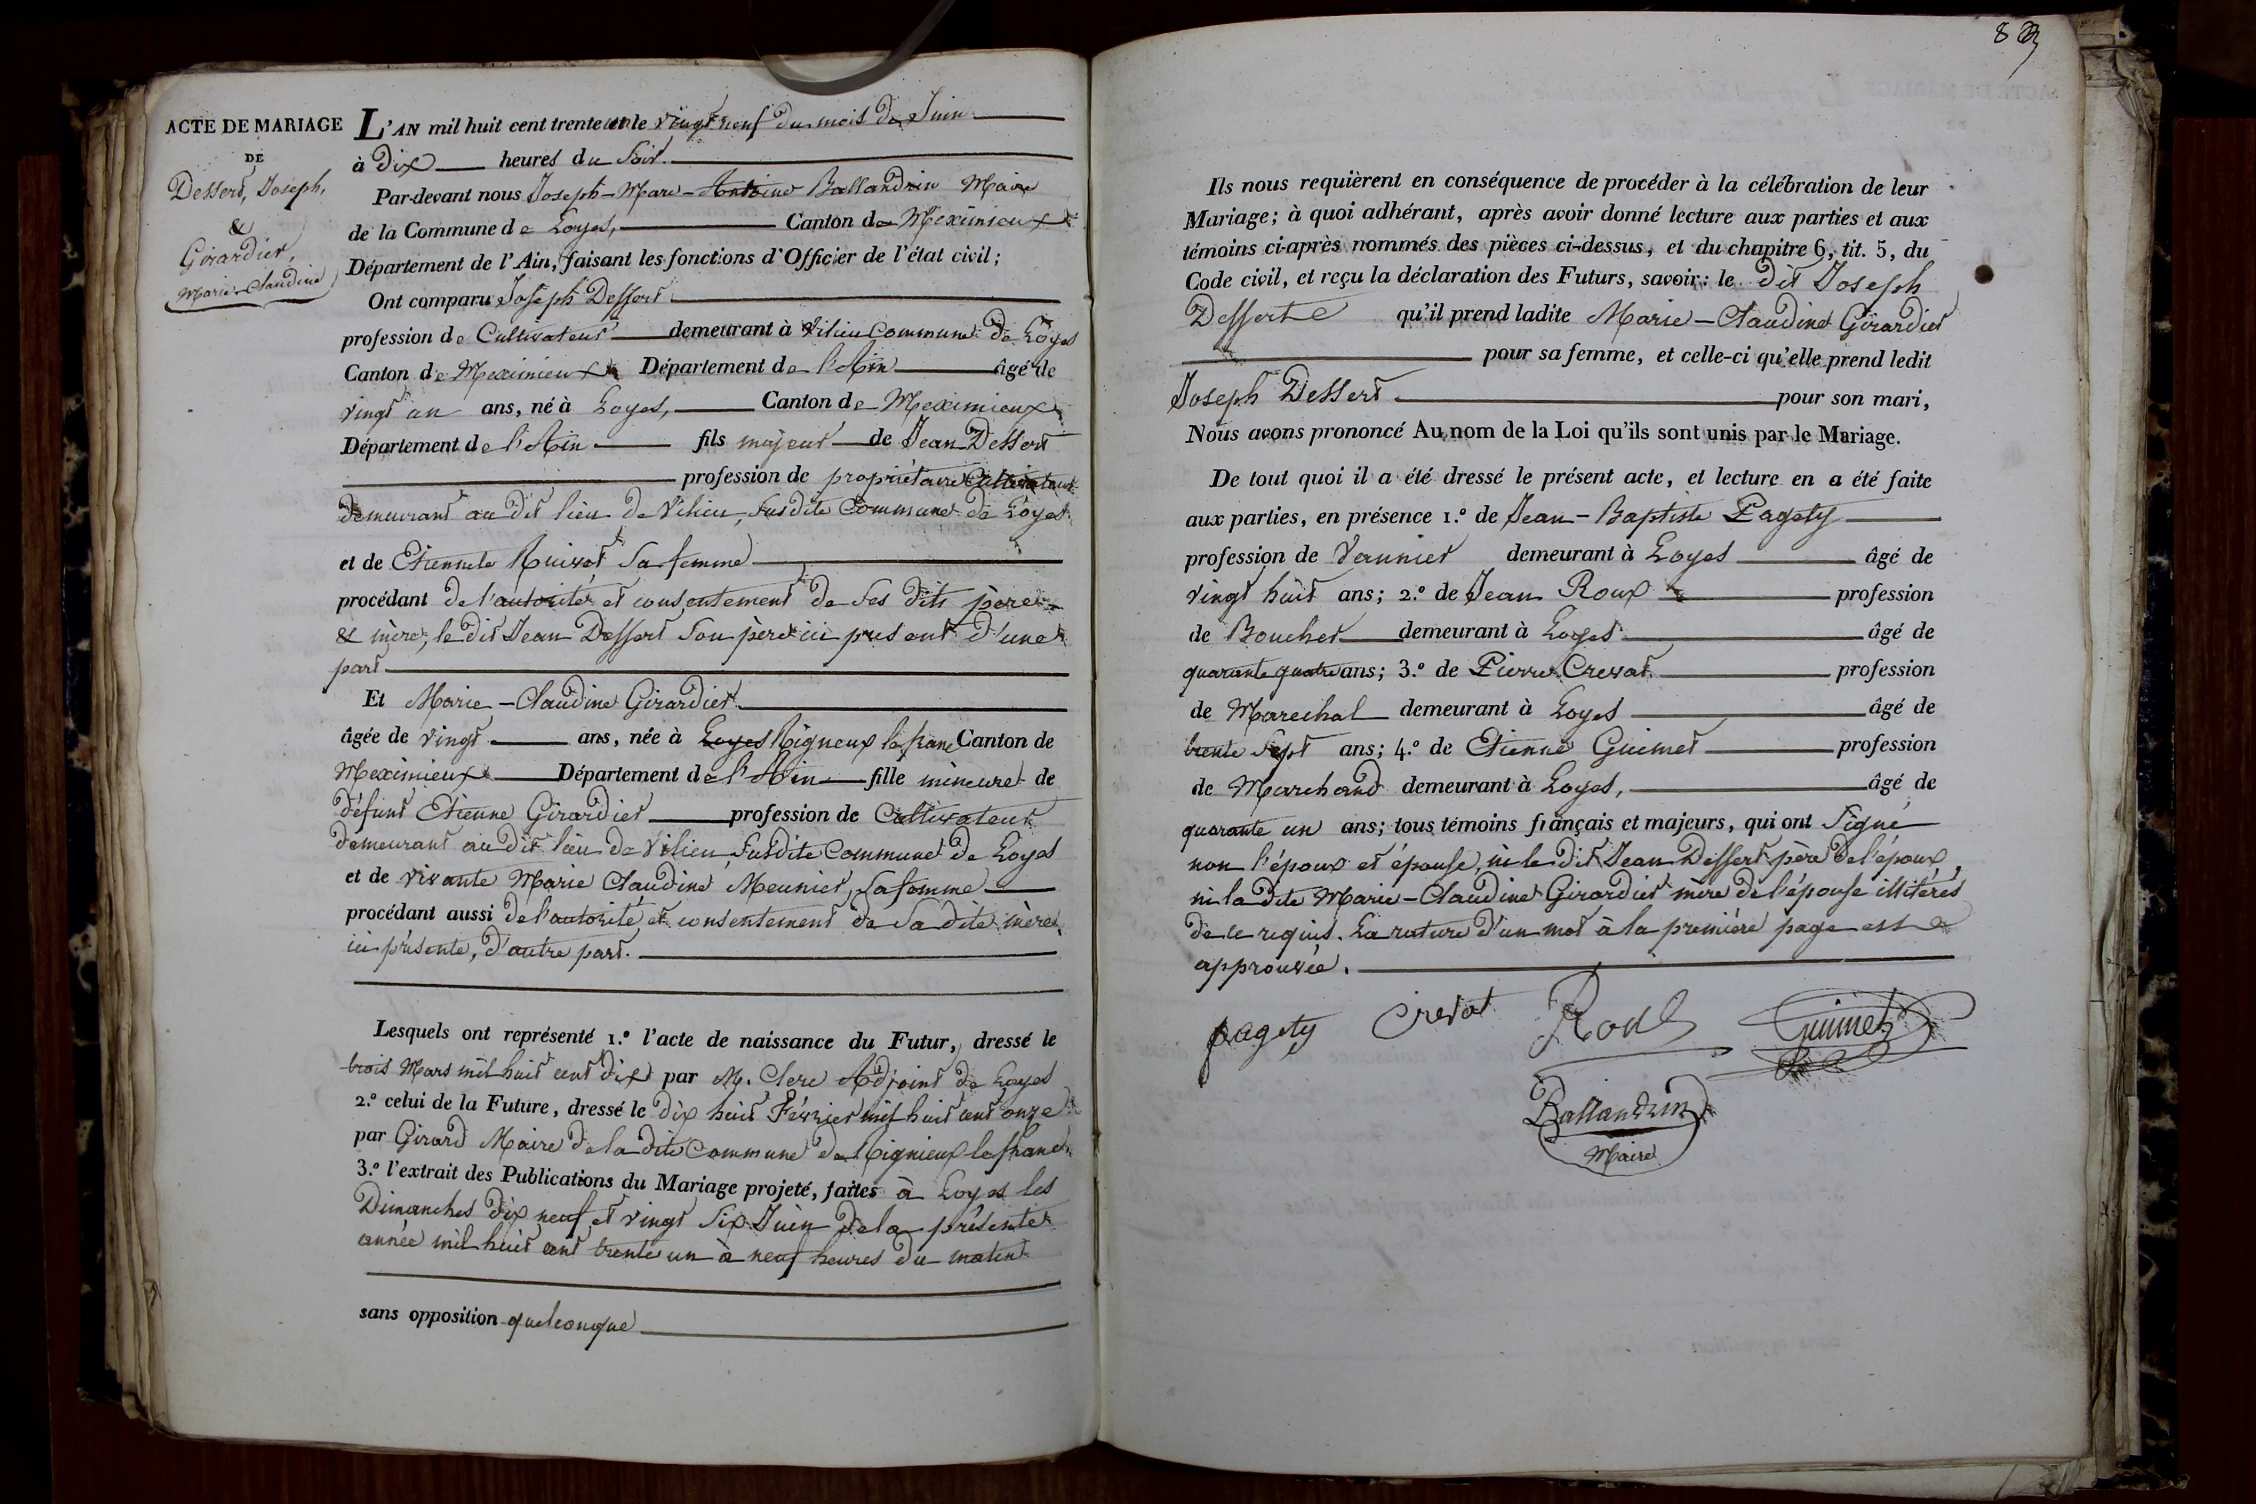 ACTE DE MARIAGE
DE
Dessert, Joseph,
&
Girardier,
Marie-Claudine
L'AN mil huit cent trente un le vingt neuf du mois de Juin
à Dix heures du soir.
Par-devant nous Joseph-Marc-Antoine Ballandrin Maire
de la Commune de Loyes, Canton de Meximieux
Département de l'Ain, faisant les fonctions d'Officier de l'état civil;
Ont comparu Joseph Dessert
profession de Cultivateur demeurant à Vilieu Commune de Loyes
Canton de Meximieux Département de l'Ain âgé de
vingt un ans, né à Loyes, Canton de Meximieux
Département de l'Ain fils majeur de Jean Dessert
profession de propriétaire Cultivateur
demeurant au dit lieu de Vilieu, susdite Commune de Loyes
et de Etiennete Ruivet sa femme
procédant de l'autorité et consentement de ses dits père
& mère, le dit Jean Dessert son père ici present d'une
part
Et Marie-Claudine Girardier
âgée de vingt ans, née à Loyes Rigneux le franc Canton de
Meximieux Département de l'Ain fille mineure de
défunt Etienne Girardier profession de Cultivateur
demeurant au dit lieu de Vilieu, susdite Commune de Loyes
et de vivante Marie Claudine Meunier, sa femme
procédant aussi de l'autorité et consentement de sa dite mère
ici présente, d'autre part.
Lesquels ont représenté 1.º l'acte de naissance du Futur, dressé le
trois Mars mil huit cent dix par M. Clerc Adjoint de Loyes
2.º celui de la Future, dressé le dix huit Février mil huit cent onze
par Girard Maire de la dite Commune de Rignieux le franc
3.º l'extrait des Publications du Mariage projeté, faites à Loyes les
Dimanches dix neuf et vingt six Juin de la présente
année mil huit cent trente un à neuf heures du matin
sans opposition quelconque
Ils nous requièrent en conséquence de procéder à la célébration de leur
Mariage; à quoi adhérant, après avoir donné lecture aux parties et aux
témoins ci-après nommés des pièces ci-dessus, et du chapitre 6, tit. 5, du
Code civil, et reçu la déclaration des Futurs, savoir: le dit Joseph
Desserte qu'il prend ladite Marie-Claudine Girardier
pour sa femme, et celle-ci qu'elle prend ledit
Joseph Dessert pour son mari,
Nous avons prononcé Au nom de la Loi qu'ils sont unis par le Mariage.
De tout quoi il a été dressé le présent acte, et lecture en a été faite
aux parties, en présence 1.º de Jean-Baptiste Pagety
profession de Vannier demeurant à Loyes âgé de
vingt huit ans; 2.º de Jean Roux profession
de Boucher demeurant à Loyes âgé de
quarante quatre ans; 3.º de Pierre Crevat profession
de Marechal demeurant à Loyes âgé de
trente sept ans; 4.º de Etienne Guimet profession
de Marchand demeurant à Loyes, âgé de
quarante un ans; tous témoins français et majeurs, qui ont signé
non l'époux et épouse, ni le dit Jean Dessert père de l'époux,
ni la dite Marie-Claudine Girardier mère de l'épouse illitérés
de ce requis. La rature d'un mot à la première page est
approuvée.
pagety Crevat Roux Guimet
Ballandrin
Maire